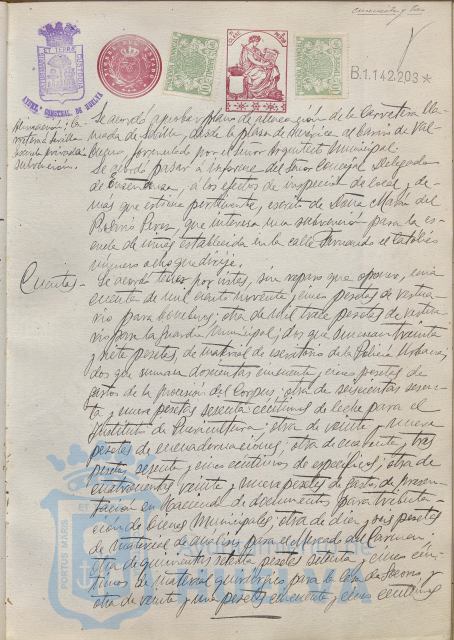 cincuenta y tres
B.1.142.203*
Se acordó aprobar plano de alineación de la Carretera lla-
mada de Sevilla, desde la plaza de America al Barrio de Val-
buena, formulado por el Señor Arquitecto Municipal.
Se acordó pasar a informe del Señor Concejal Delegado
de Enseñanza, a los efectos de inspección de local y de-
mas que estime pertinente, escrito de Dona María del
Rosario Perez, que interesa una subvención para la es-
cuela de niñas establecida en la calle Fernando el Católico
número ocho que dirije.
Cuentas -
Se acordó tener por vistas, sin reparo que oponer, una
cuenta de mil ciento noventa y cinco pesetas de vestua-
rio para bomberos; otra de mil trece pesetas de vestua-
rio para la Guardia Municipal; dos que suman treinta
y siete pesetas, de material de escritorio de la Policia Urbana;
dos que suman doscientas cincuenta y cinco pesetas de
gastos de la procesión del Corpus; otra de seiscientas sesen-
ta y nueve pesetas sesenta centimos de leche para el
Instituto de Puericultura; otra de veinte y nueve
pesetas de encuadernaciones; otra de cuarenta y tres
pesetas setenta y cinco centimos de específicos; otra de
cuatrocientas veinte y nueve pesetas de gastos de presen-
tación en Hacienda de documentos para tributa-
ción de bienes Municipales; otra de diez y seis pesetas
de material de analisis para el mercado del Carmen;
otra de quinientas setenta pesetas setenta y cinco cén-
timos de material quirúrgico para la Casa de Socorro y
otra de veinte y una pesetas cincuenta y cinco centimos
PORTUS MARIS
HUELVA